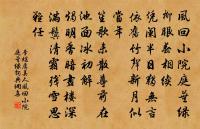 風回小院庭蕪綠
柳眼春相續憑
闌半日獨無言
依舊竹聲新月似
當年
笙歌未散尊前在
池面冰初解
燭明香暗畫樓深
滿鬢清霜殘雪思
難任
李煜虞美人風回小院
庭蕪綠